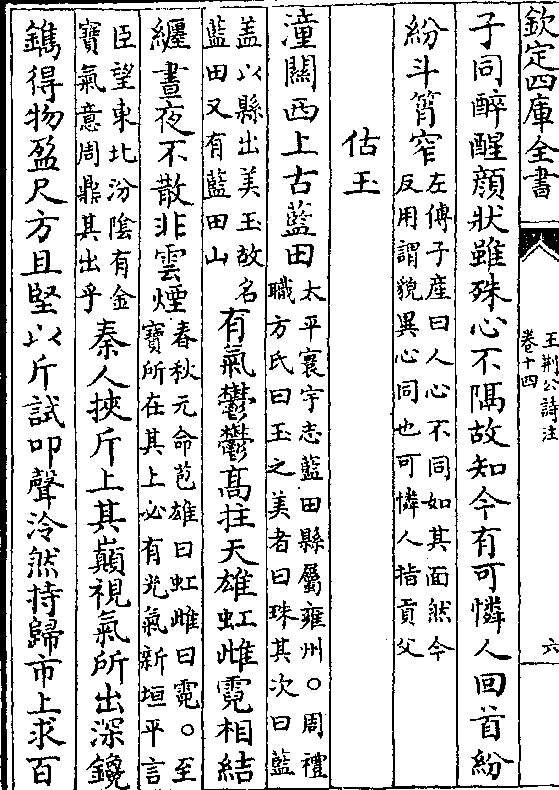 欽定四庫全書
王荆公詩注
卷十四
六
子同醉醒顔狀雖殊心不隔故知今有可憐人回首紛
紛斗筲窄左傳子産曰人心不同如其面然今
反用謂貌異心同也可憐人指貢父
估玉
潼關西上古藍田太平寰宇志藍田縣屬雍州○周禮
職方氏曰玉之美者曰珠其次曰藍
盖以縣出美玉故名
藍田又有藍田山
有氣鬱鬱髙拄天雄虹雌霓相結
纒晝夜不散非雲煙春秋元命苞雄曰虹雌曰霓○至
寳所在其上必有光氣新垣平言
臣望東北汾隂有金
寳氣意周鼎其出乎
秦人挾斤上其巔視氣所出深鑱
鐫得物盈尺方且堅以斤試叩聲泠然持歸市上求百